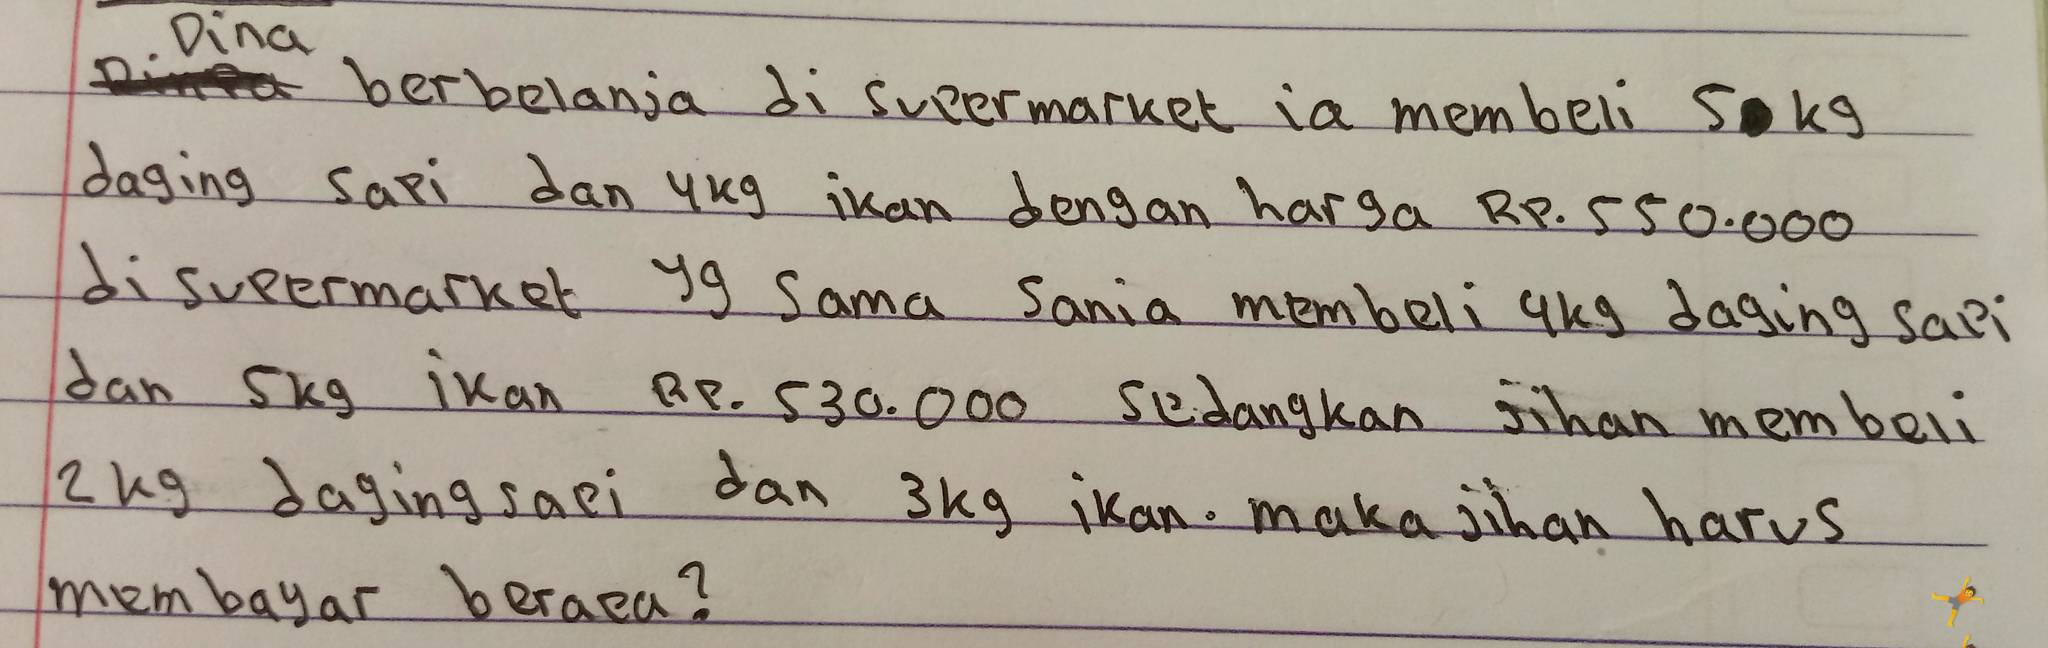 Dina
berbelanja di supermarket ia membeli 5 kg
daging sapi dan 4kg ikan dengan harga RP. 550.000
di supermarket yg sama sania membeli 4kg daging sapi
dan 5kg ikan RP. 530.000 sedangkan jihan membeli
2kg daging sapi dan 3kg ikan. maka jihan harus
membayar berapa?